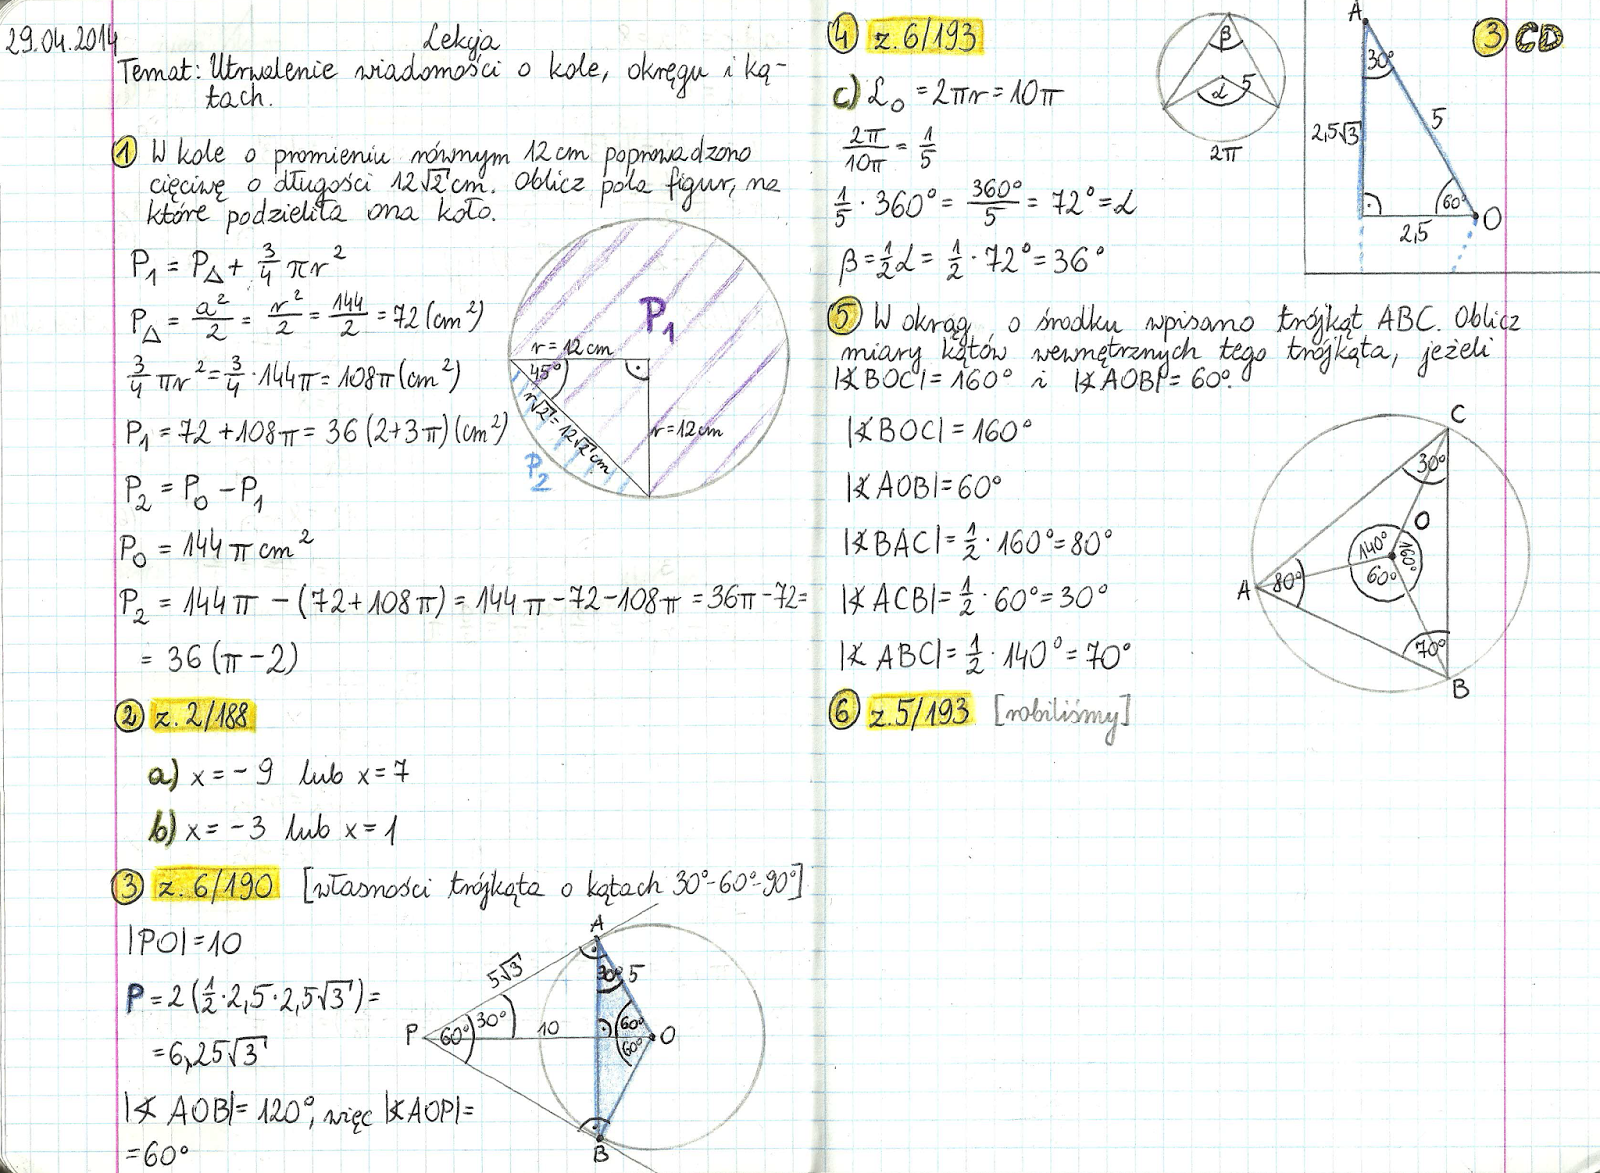 29.04.2014
Lekcja
Temat: Utrwalenie wiadomości o kole, okręgu i ką-
tach.
1 W kole o promieniu równym 12 cm poprowadzono
cięciwę o długości 12√2 cm. Oblicz pola figur, na
które podzieliła ona koło.
P₁ = P△ + 3/4 πr²
P△ = a²/2 = r²/2 = 144/2 = 72 (cm²)
3/4 πr² = 3/4 · 144π = 108π (cm²)
P₁ = 72 + 108π = 36 (2+3π) (cm²)
P₂ = P₀ - P₁
P₀ = 144 π cm²
P₂ = 144π - (72+108π) = 144π - 72 - 108π = 36π - 72 =
= 36 (π - 2)
P₁
r = 12 cm
45°
r√2 = 12√2 cm
r = 12 cm
P₂
2 z. 2/188
a) x = -9 lub x = 7
b) x = -3 lub x = 1
3 z. 6/190 [własności trójkąta o kątach 30°-60°-90°]
|PO| = 10
P = 2 (1/2 · 2,5 · 2,5√3) =
= 6,25√3
|∢ AOB| = 120°, więc |∢AOP| =
= 60°
A
5√3
30° 5
P 60° 30° 10 60° O
60°
B
4 z. 6/193
c) L₀ = 2πr = 10π
2π/10π = 1/5
1/5 · 360° = 360°/5 = 72° = α
β = 1/2 α = 1/2 · 72° = 36°
β
α 5
2π
3 CD
A
30°
2,5√3 5
60° O
2,5
5 W okrąg o środku wpisano trójkąt ABC. Oblicz
miary kątów wewnętrznych tego trójkąta, jeżeli
|∢BOC| = 160° i |∢AOB| = 60°.
|∢BOC| = 160°
|∢AOB| = 60°
|∢BAC| = 1/2 · 160° = 80°
|∢ACB| = 1/2 · 60° = 30°
|∢ABC| = 1/2 · 140° = 70°
C
30°
O
140° 160°
60°
A 80°
70°
B
6 z. 5/193 [robiliśmy]